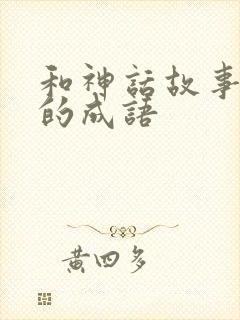 和神話故事
的成語
黃四多